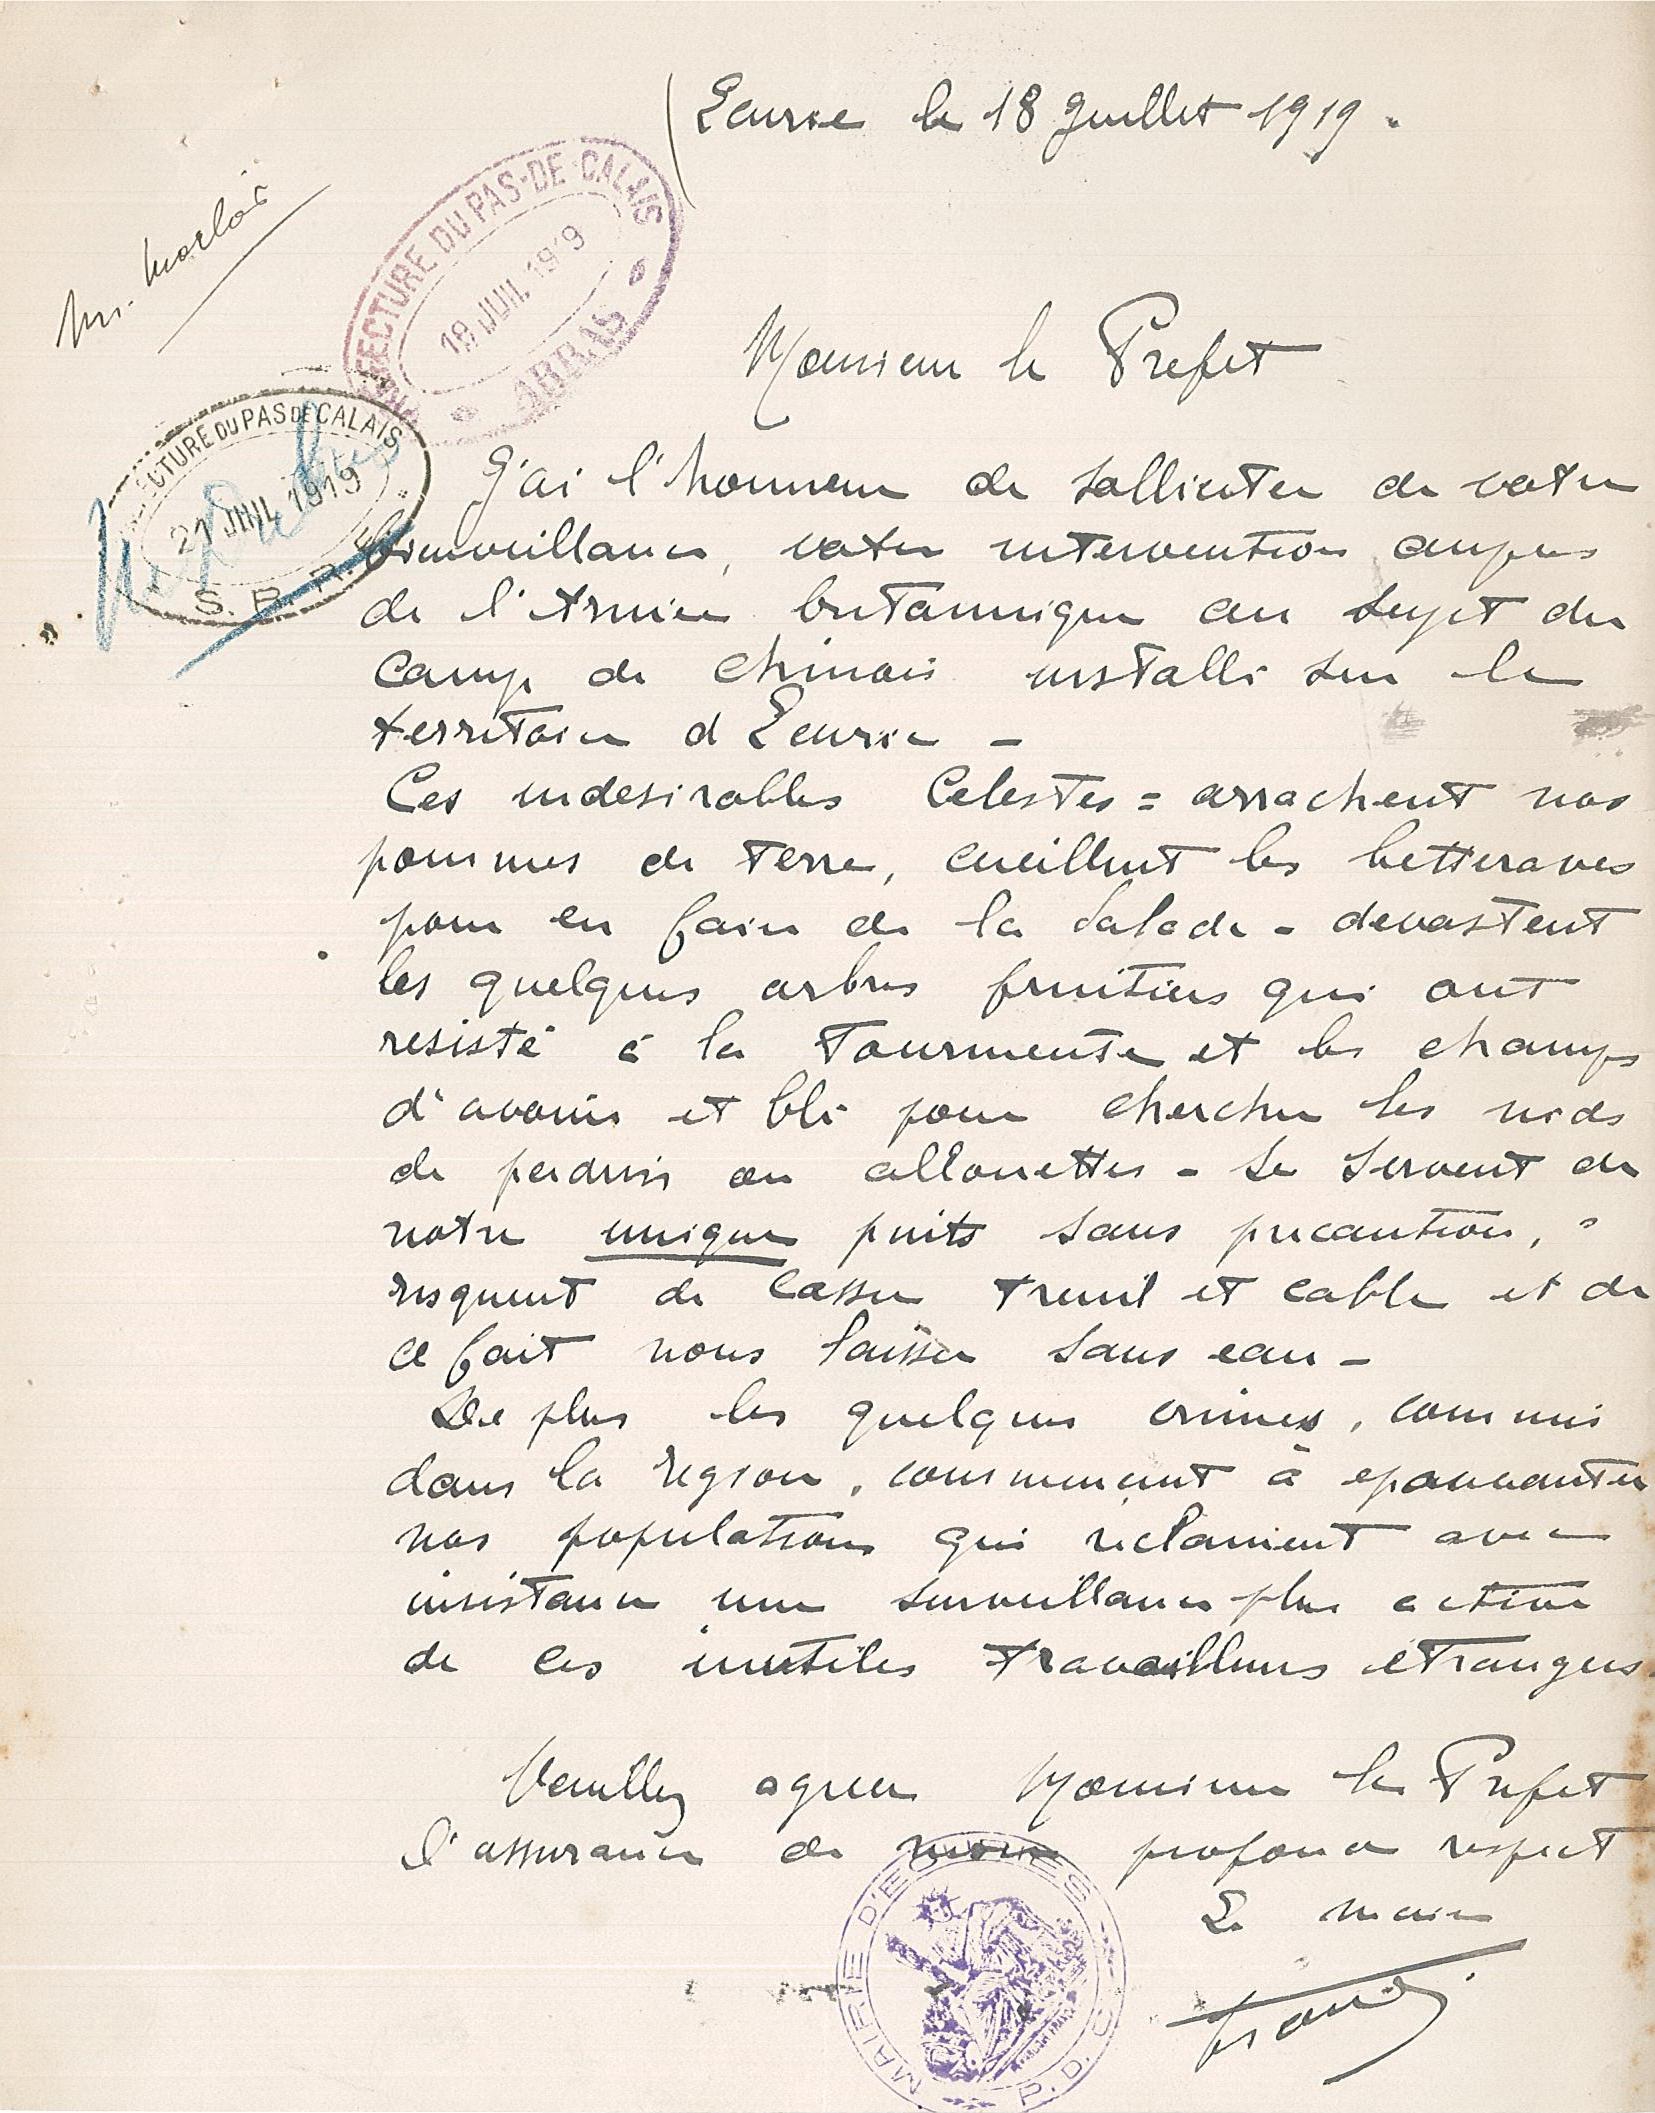 Ecurie le 18 Juillet 1919.
M. Morlais
PREFECTURE DU PAS-DE-CALAIS
19 JUIL. 1919
ARRAS
Monsieur le Prefet
PREFECTURE DU PAS DE CALAIS
21 JUIL 1919
S. B. R.
J'ai l'honneur de sollicter de votre
bienveillance, votre intervention aupres
de l'Armée britannique au sujet du
camp de chinois installé sur le
territoire d'Ecurie -
Ces indesirables Celestes = arrachent nos
pommes de terre, cueillent les betteraves
pour en faire de la salade - devastent
les quelques arbres fruitiers qui ont
resisté à la tourmente et les champs
d'avoine et blé pour chercher les nids
de perdrix ou allouettes - se servent de
notre unique puits sans precaution,
risquent de casser treuil et cable et de
ce fait nous laisser sans eau -
De plus les quelques crimes, commis
dans la region, commencent à epouvanter
nos populations qui réclament avec
insistance une surveillance plus active
de ces inutiles travailleurs étrangers.
Veuillez agreer Monsieur le Prefet
l'assurance de mon profond respect
Le maire
MAIRIE D'ECURIES
P. D. C.